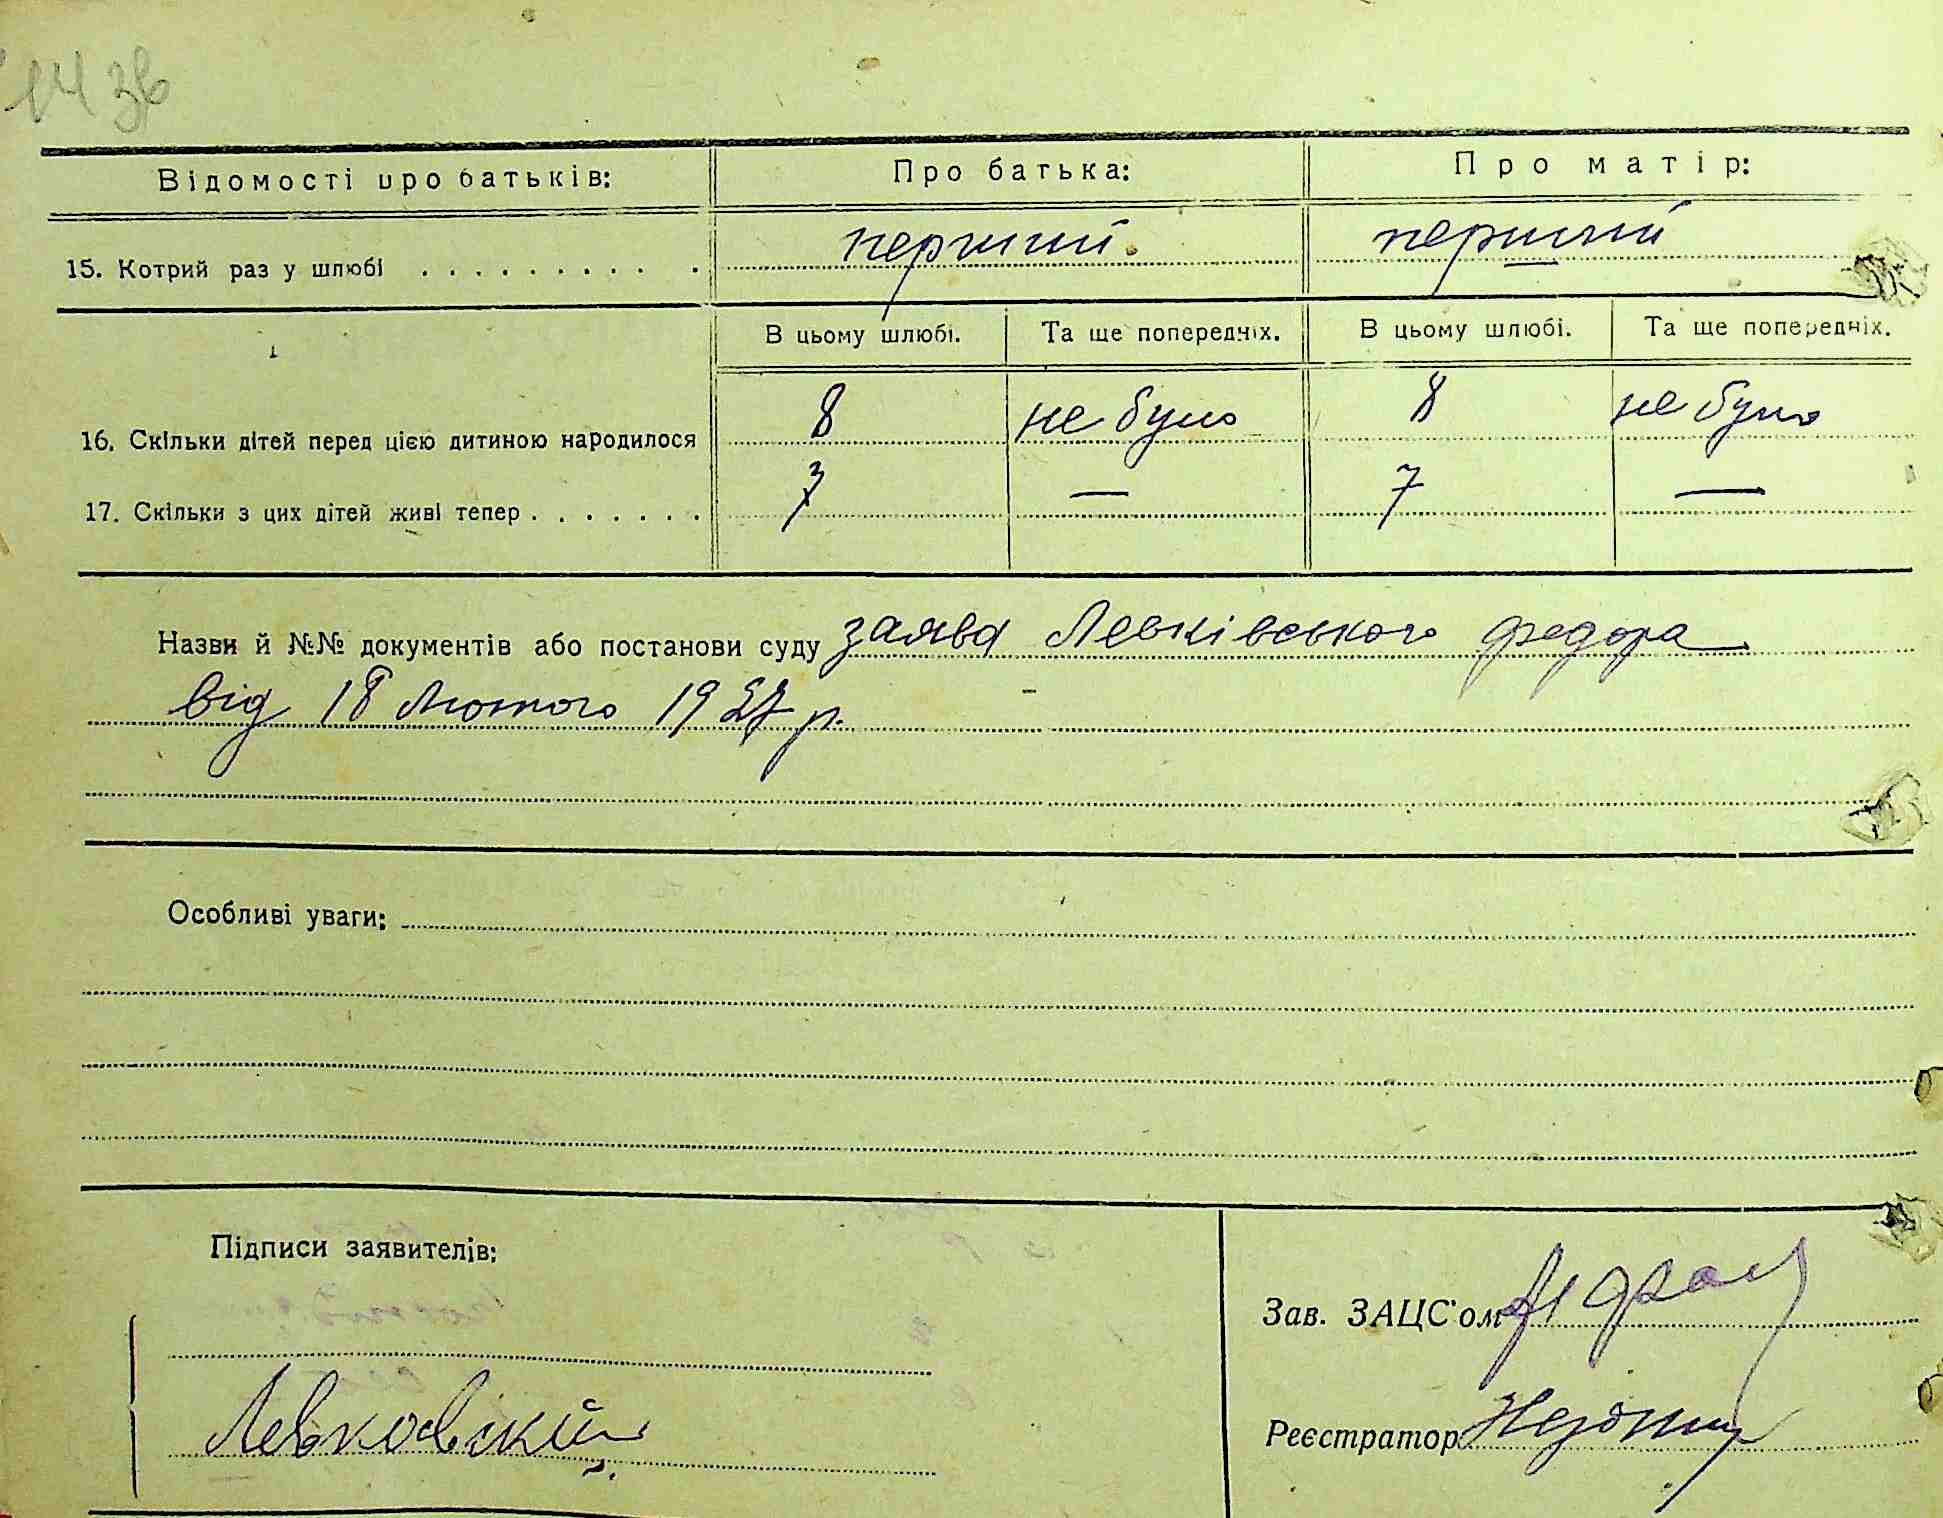 14 зв
Відомості про батьків: Про батька: Про матір:
15. Котрий раз у шлюбі . . . . . . . . . . перший. перший
В цьому шлюбі. Та ще попередніх. В цьому шлюбі. Та ще попередніх.
16. Скільки дітей перед цією дитиною народилося 8 не було 8 не було
17. Скільки з цих дітей живі тепер . . . . . . . 7 — 7 —
Назви й №№ документів або постанови суду заява Левківського Федора
від 18 Лютого 1927 р.
Особливі уваги:
Підписи заявителів:
Зав. ЗАЦС'ом
Левковский
Реєстратор